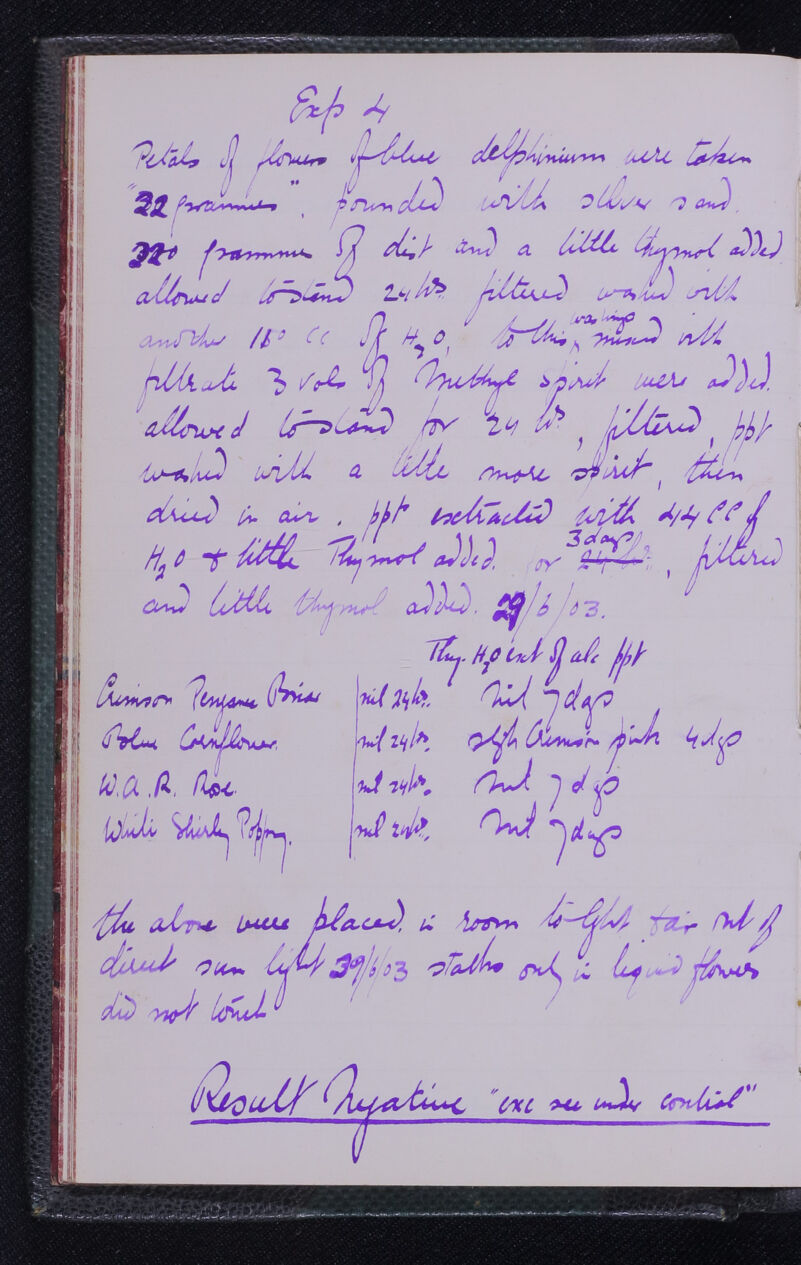 Exp 4
Petals of flowers of blue delphinium were taken
"22 grammes". pounded with silver sand.
220 grammes of dist and a little thymol added
allowed to stand 24 hrs. filtered washed with
another 110 cc of H2O, to this washings mixed with
filtrate 3 vols of Methyl spirit were added.
allowed to stand for 24 hrs, filtered, ppt
washed with a little more spirit, then
dried in air. ppt extracted with 44 CC of
H2O & little Thymol added. for 24 hrs. 3 days, filtered
and little thymol added. 29/6/03.
Thy. H2O ext of alc ppt
Crimson Penzance Briar | nil 24 hrs. Nil 7 days
Blue Cornflower. | nil 24 hrs. sligh Crimson pink 4 dys
W.A.R. Rose. | nil 24 hrs. Nil 7 dys
White Shirley Poppy. | nil 24 hrs. Nil 7 days
the above were placed in room to light & air out of
direct sun light 29/6/03 stalks only in liquid flowers
did not touch
Result Negative "exc see under control"